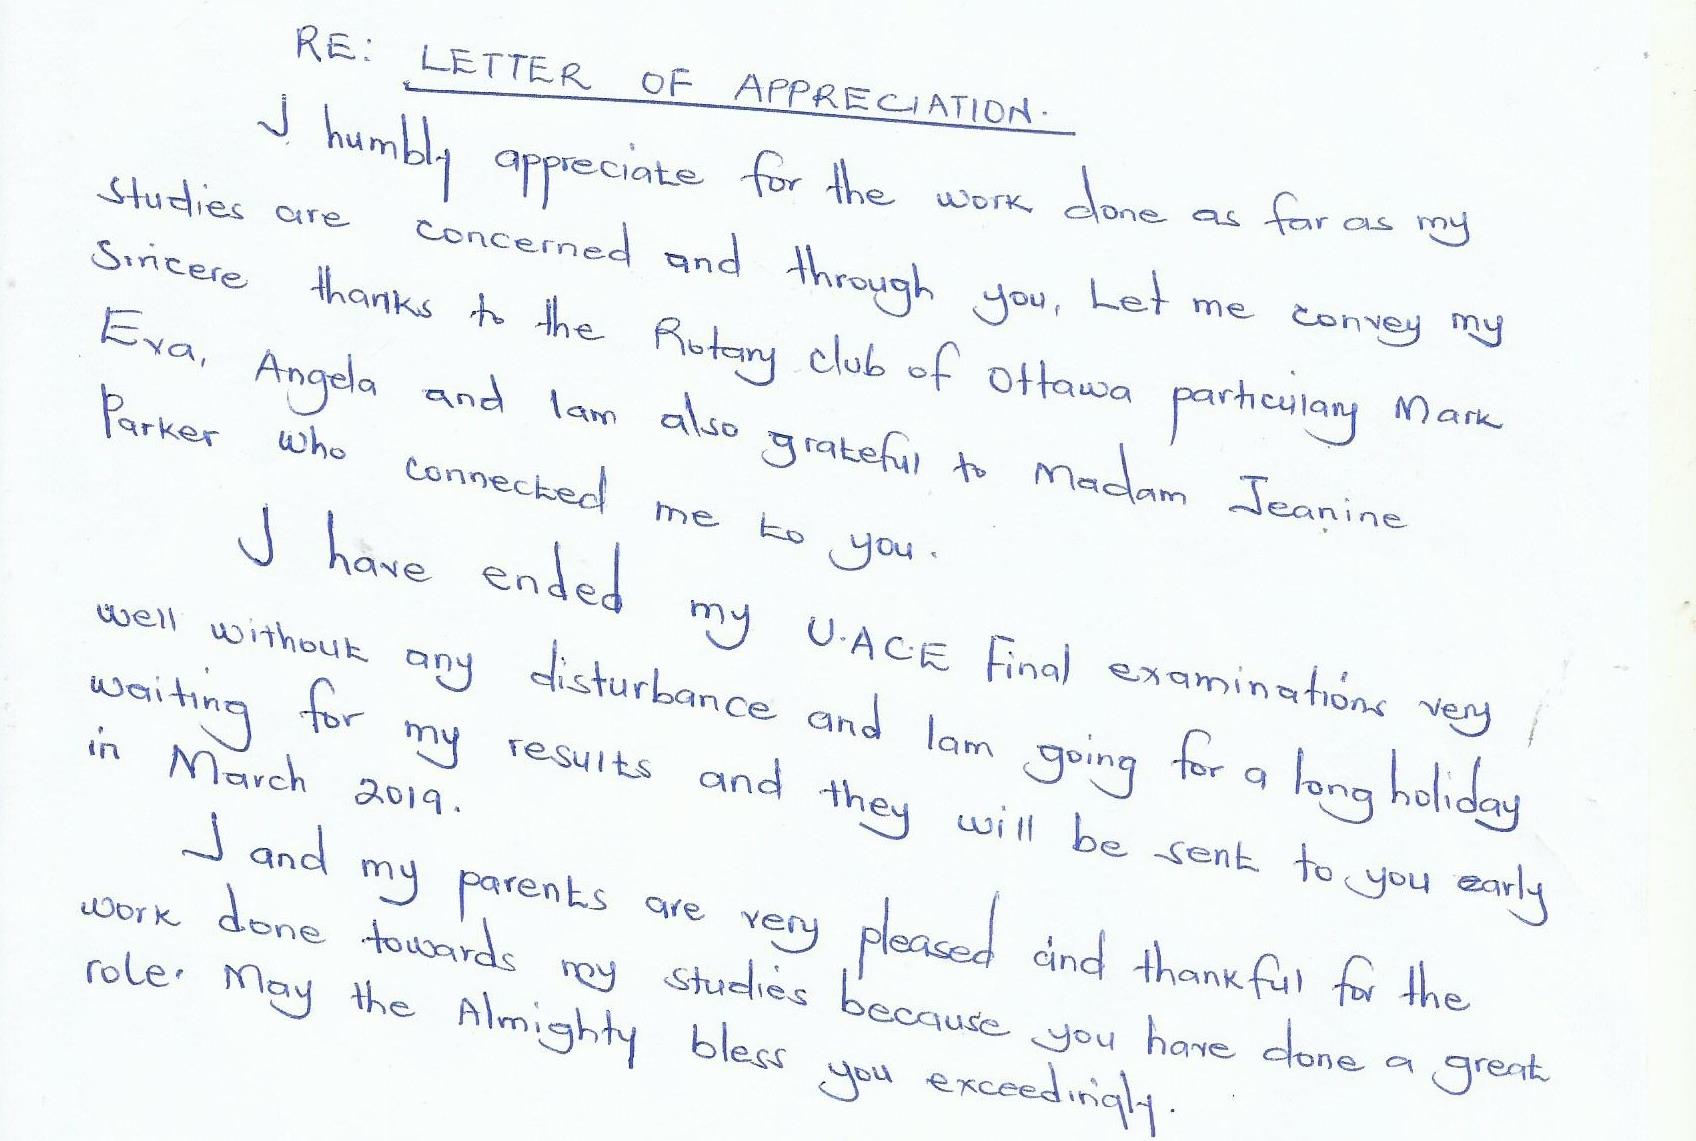 RE: LETTER OF APPRECIATION.
I humbly appreciate for the work done as far as my
studies are concerned and through you, Let me convey my
sincere thanks to the Rotary club of Ottawa particulary Mark
Eva, Angela and Iam also grateful to Madam Jeanine
Parker who connected me to you.
I have ended my U.A.C.E Final examinations very
well without any disturbance and Iam going for a long holiday
waiting for my results and they will be sent to you early
in March 2019.
I and my parents are very pleased and thankful for the
work done towards my studies because you have done a great
role. May the Almighty bless you exceedingly.